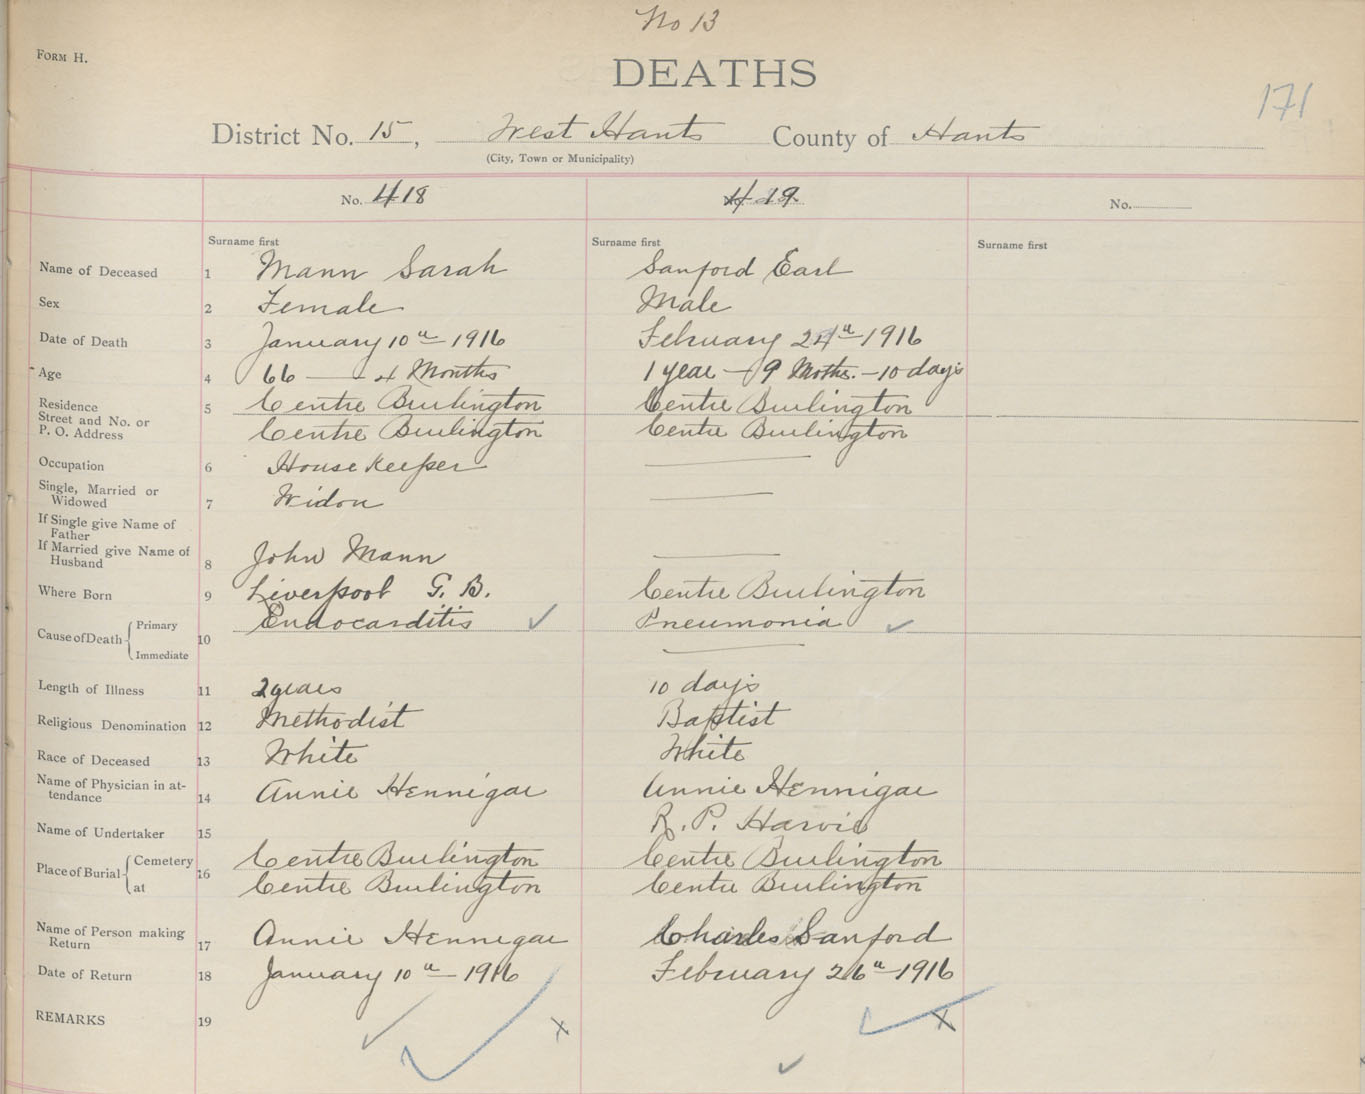 No 13
FORM H.
DEATHS
171
District No. 15, West Hants County of Hants
(City, Town or Municipality)
No. 418 419 No.
Surname first Surname first Surname first
Name of Deceased 1 Mann Sarah Sanford Earl
Sex 2 Female Male
Date of Death 3 January 10th 1916 February 24th 1916
Age 4 66 — 4 Months 1 year — 9 Moths. — 10 days
Residence 5 Centre Burlington Centre Burlington
Street and No. or
P. O. Address Centre Burlington Centre Burlington
Occupation 6 House Keeper
Single, Married or
Widowed 7 Widow
If Single give Name of
Father
If Married give Name of
Husband 8 John Mann
Where Born 9 Liverpool G. B. Centre Burlington
Cause of Death Primary 10 Endocarditis ✓ Pneumonia ✓
Immediate
Length of Illness 11 2 years 10 days
Religious Denomination 12 Methodist Baptist
Race of Deceased 13 White White
Name of Physician in at-
tendance 14 Annie Hennigar Annie Hennigar
Name of Undertaker 15 R. P. Harvie
Place of Burial Cemetery 16 Centre Burlington Centre Burlington
at Centre Burlington Centre Burlington
Name of Person making
Return 17 Annie Hennegar Charles Sanford
Date of Return 18 January 10th 1916 February 26th 1916
REMARKS 19